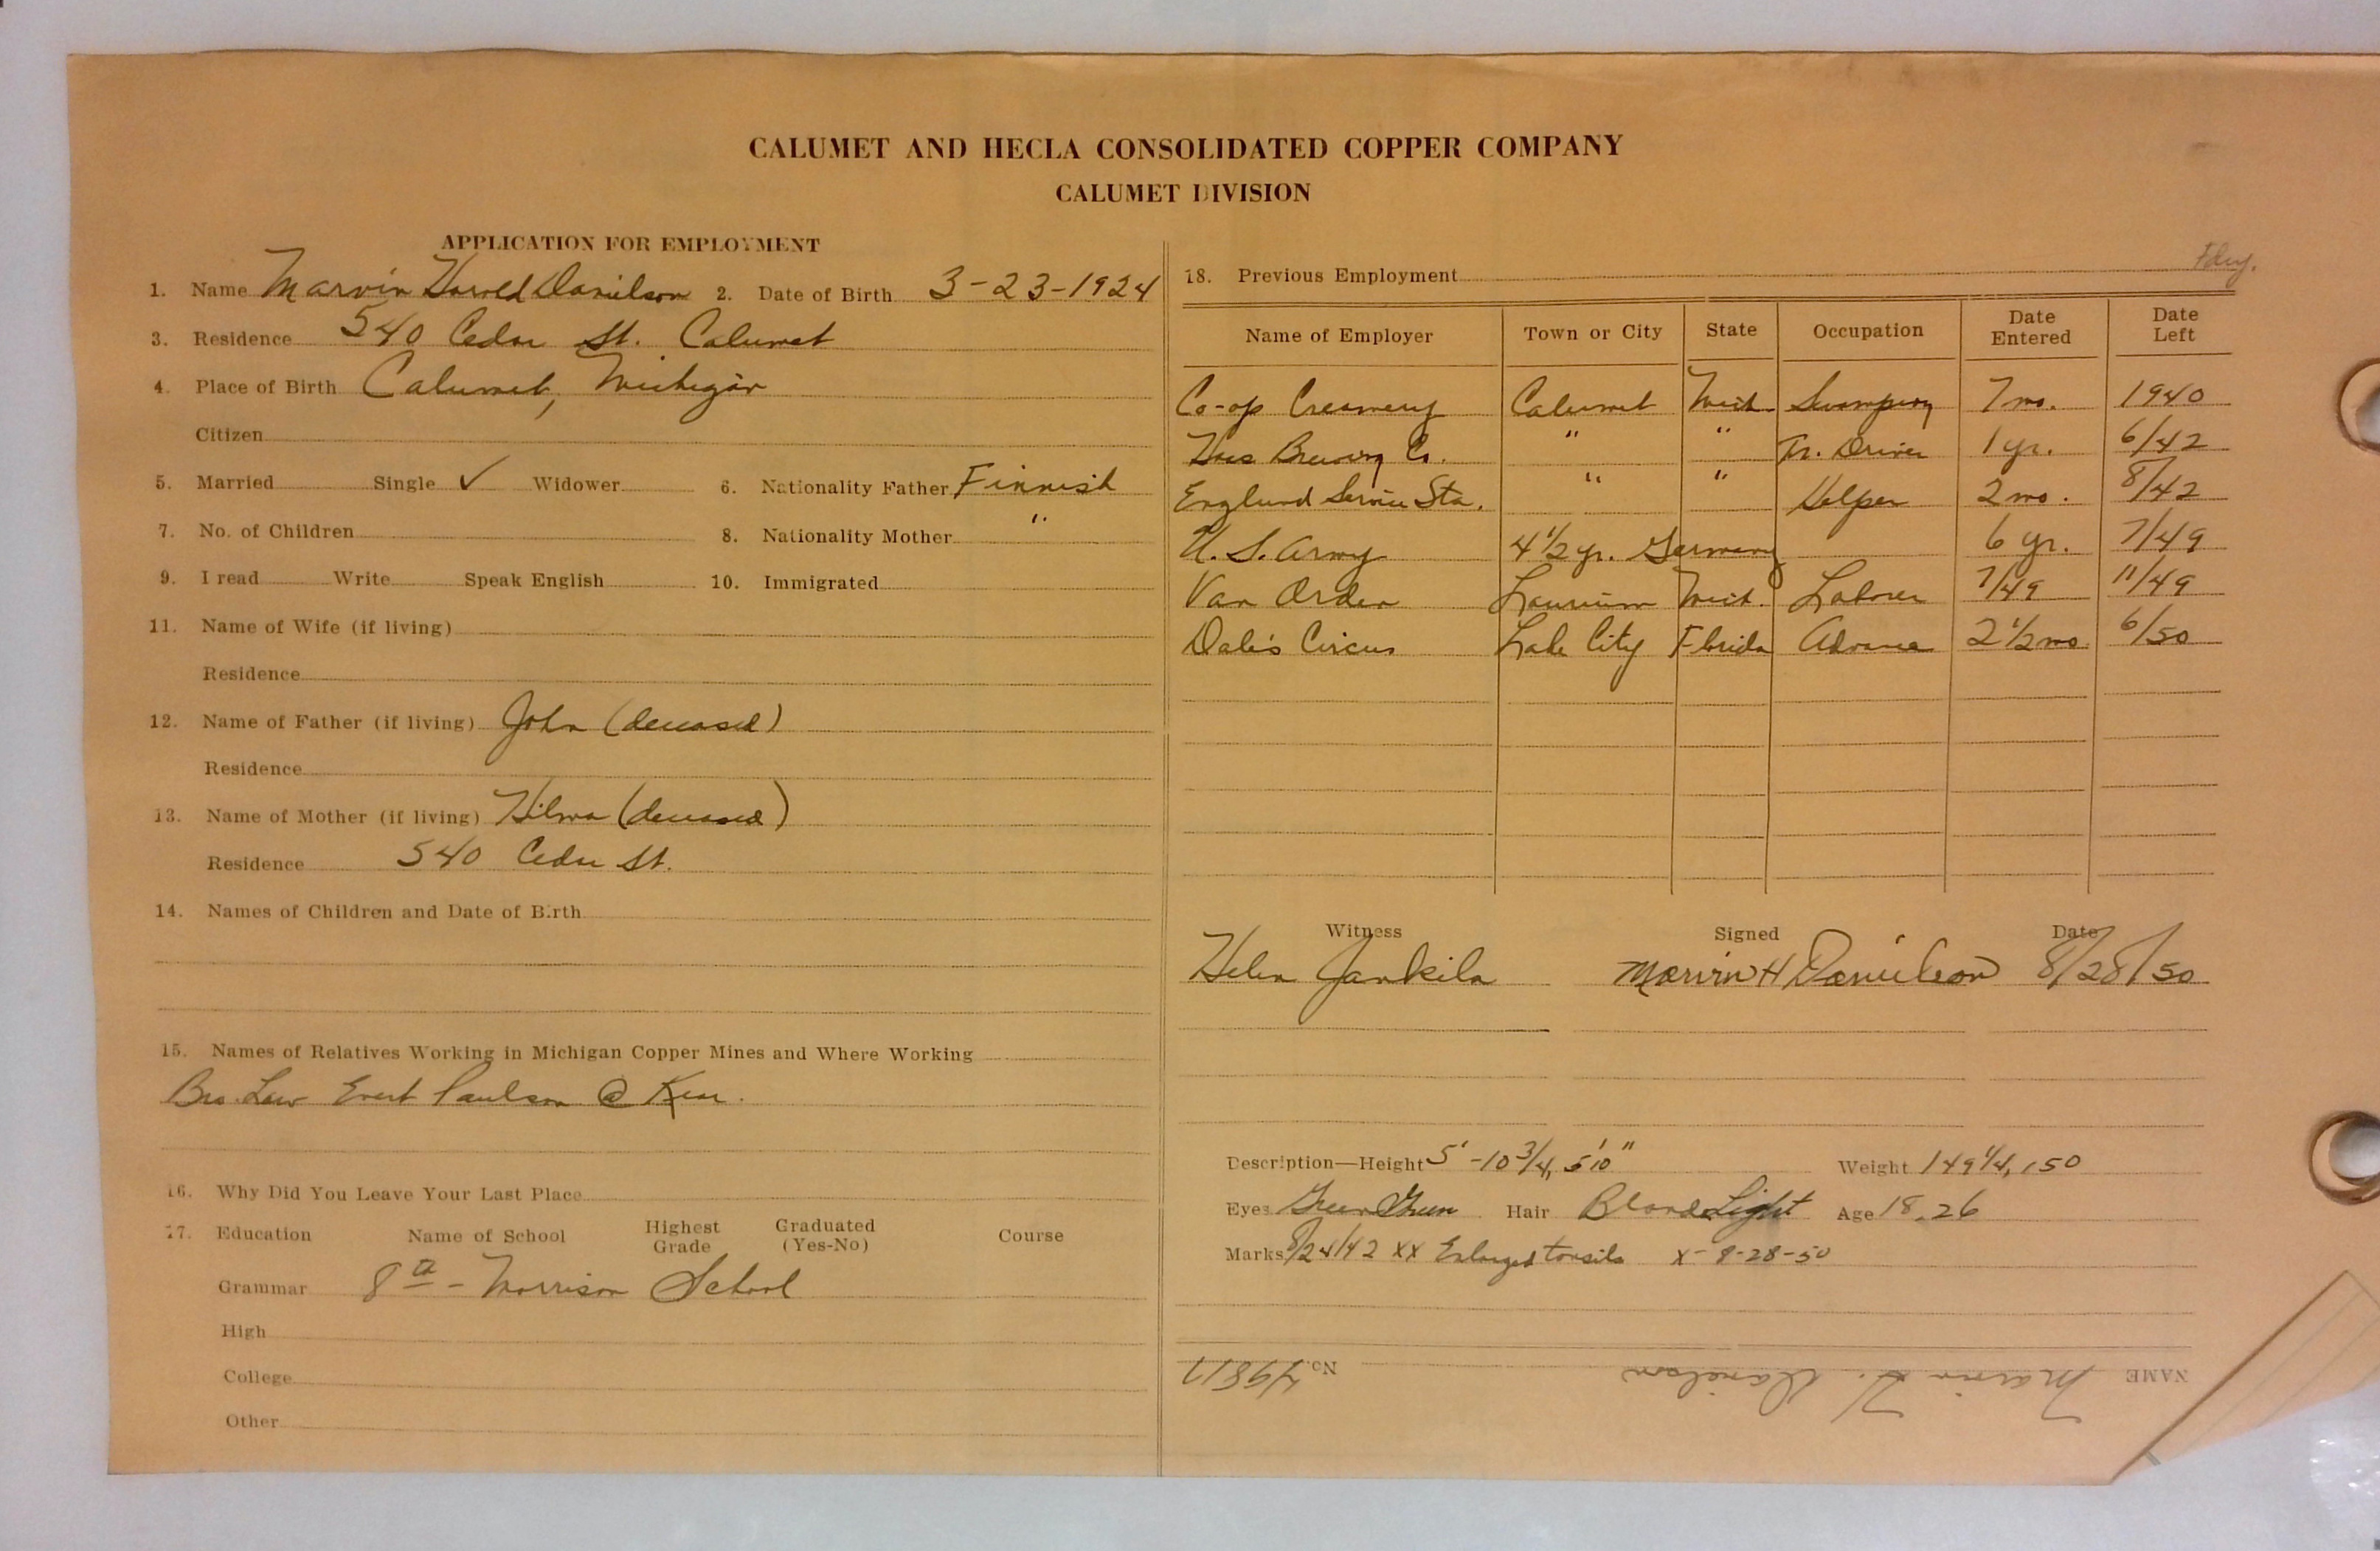 CALUMET AND HECLA CONSOLIDATED COPPER COMPANY
CALUMET DIVISION
APPLICATION FOR EMPLOYMENT
1. Name Marvin Harold Danielson 2. Date of Birth 3-23-1924
3. Residence 540 Cedar St. Calumet
4. Place of Birth Calumet, Michigan
Citizen
5. Married Single ✓ Widower 6. Nationality Father Finnish
7. No. of Children 8. Nationality Mother "
9. I read Write Speak English 10. Immigrated
11. Name of Wife (if living)
Residence
12. Name of Father (if living) John (deceased)
Residence
13. Name of Mother (if living) Hilma (deceased)
Residence 540 Cedar St.
14. Names of Children and Date of Birth
15. Names of Relatives Working in Michigan Copper Mines and Where Working
Bro. Law Evert Paulson @ Kear.
16. Why Did You Leave Your Last Place
17. Education Name of School Highest Grade Graduated (Yes-No) Course
Grammar 8th - Morrison School
High
College
Other
18. Previous Employment Fdry.
Name of Employer Town or City State Occupation Date Entered Date Left
Co-op Creamery Calumet Mich. 7 mo. 1940
Brewing Co. " " Tr. Driver 1 yr. 6/42
Englund Service Sta. " " Helper 2 mo. 8/42
U. S. Army 4 1/2 yr. Germany 6 yr. 7/49
Van Orden Laurium Mich. Laborer 7/49 11/49
Dale's Circus Lake City Florida Advance 2 1/2 mo. 6/50
Witness Signed Date
Helen Jankila Marvin H Danielson 8/28/50
Description—Height 5'-10 3/4, 5'10" Weight 149 1/4, 150
Eyes Green Green Hair Blond Light Age 18, 26
Marks 8/24/42 xx Enlarged tonsils x- 8-28-50
NAME Marvin H. Danielson No. 49817